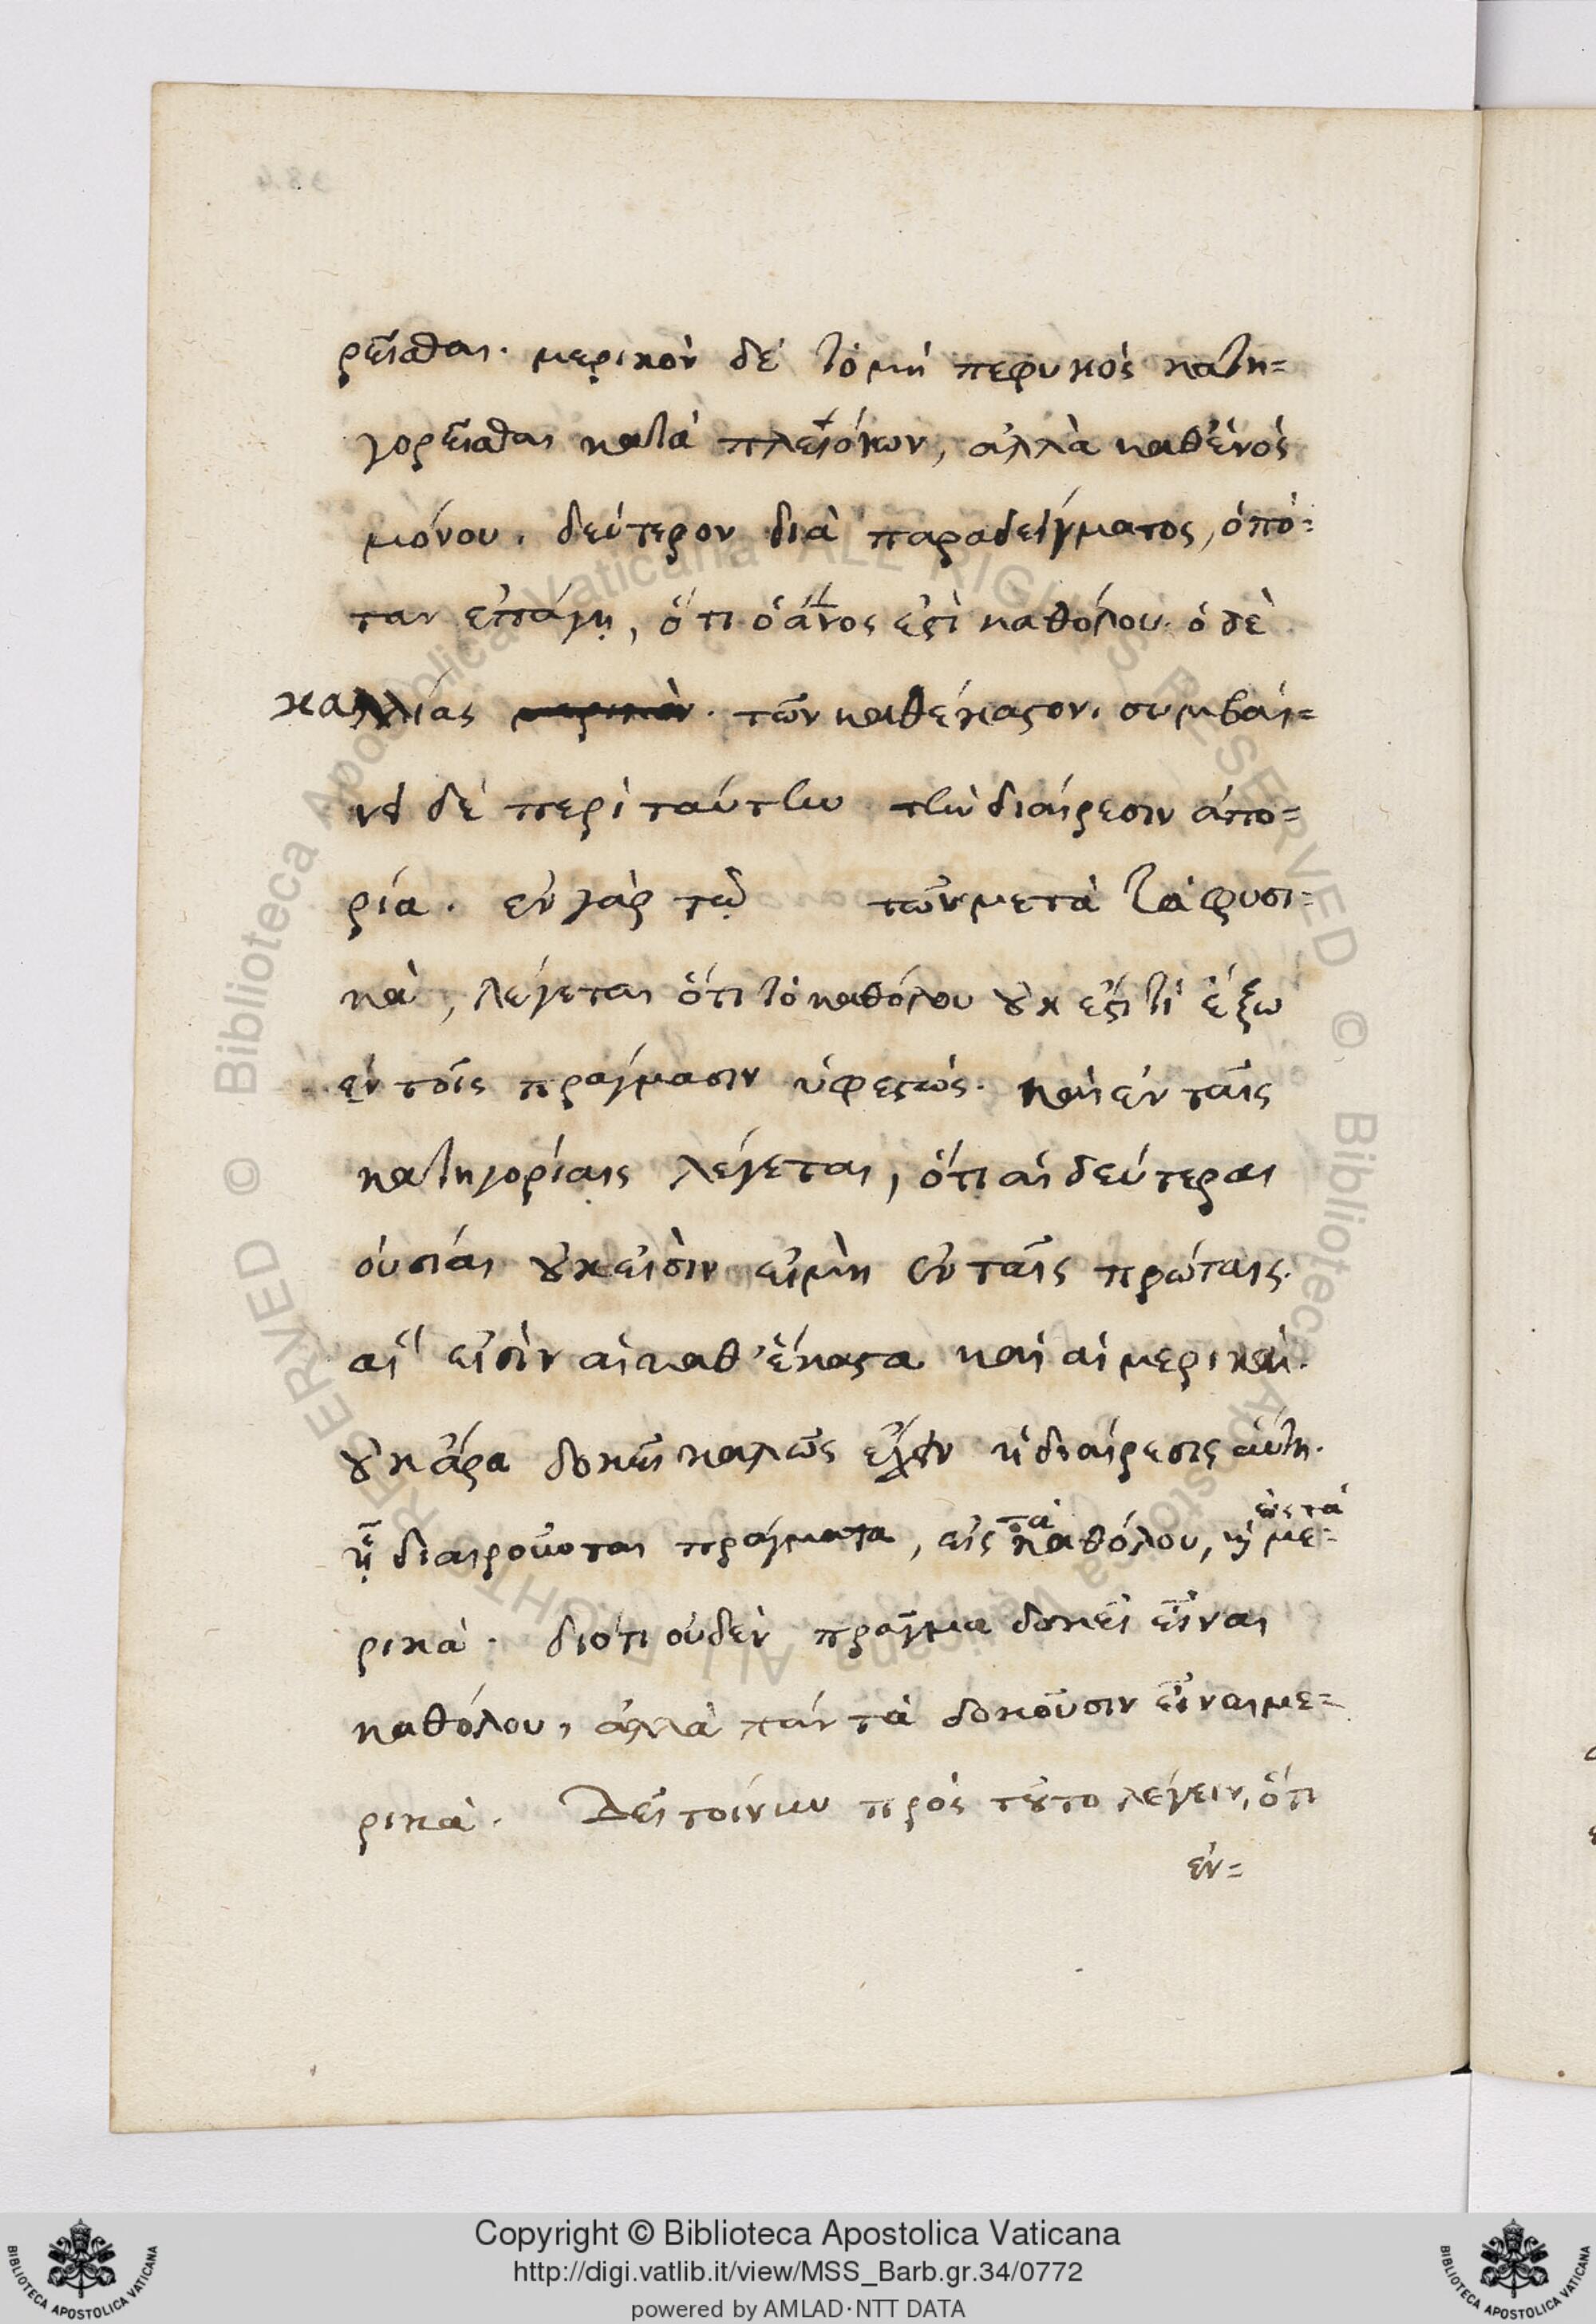 ρεῖσθαι. μερικὸν δὲ τὸ μὴ πεφυκὸς κατη=
γορεῖσθαι κατὰ πλειόνων, ἀλλὰ καθ' ἑνὸς
μόνου. δεύτερον διὰ παραδείγματος, ὁπό=
ταν ἐπάγῃ, ὅτι ὁ ἄνος ἐϛὶ καθόλου. ὁ δὲ
καλλίας των καθέκαϛον. συμβαί=
νει δὲ περὶ ταύτην τὴν διαίρεσιν ἀπο=
ρία. ἐν γὰρ τῷ τῶν μετὰ τὰ φυσι=
κὰ, λέγεται ὅτι τὸ καθόλου ȣκ ἐϛί τι ἔξω
ἐν τοῖς πράγμασιν ὑφεϛώς. καὶ ἐν ταῖς
κατηγορίαις λέγεται, ὅτι αἱ δεύτεραι
ὀυσίαι ȣκ εἰσὶν εἰμὴ ἐν ταῖς πρώταις.
αἵ εἰσὶν αἱ καθ' ἕκαϛα καὶ αἱ μερικαί.
ȣκ ἄρα δοκεῖ καλῶς ἔχειν ἡ διαίρεσις ἀύτη.
ᾗ διαιροῦνται πράγματα, εἰς τὰ καθόλου, κỳ εἰς τὰ με=
ρικά. διότι οὐδὲν πρᾶγμα δοκεῖ εἶναι
καθόλου, ἀλλὰ πάντα δοκοῦσιν εἶναι με=
ρικά. Δεῖ τοίνυν πρὸς τȣτο λέγειν, ὅτι
ἐν=
Copyright © Biblioteca Apostolica Vaticana
http://digi.vatlib.it/view/MSS_Barb.gr.34/0772
powered by AMLAD·NTT DATA
BIBLIOTECA APOSTOLICA VATICANA
BIBLIOTECA APOSTOLICA VATICANA
© Biblioteca Apostolica Vaticana ALL RIGHTS RESERVED
© Biblioteca Apostolica Vaticana ALL RIGHTS RESERVED